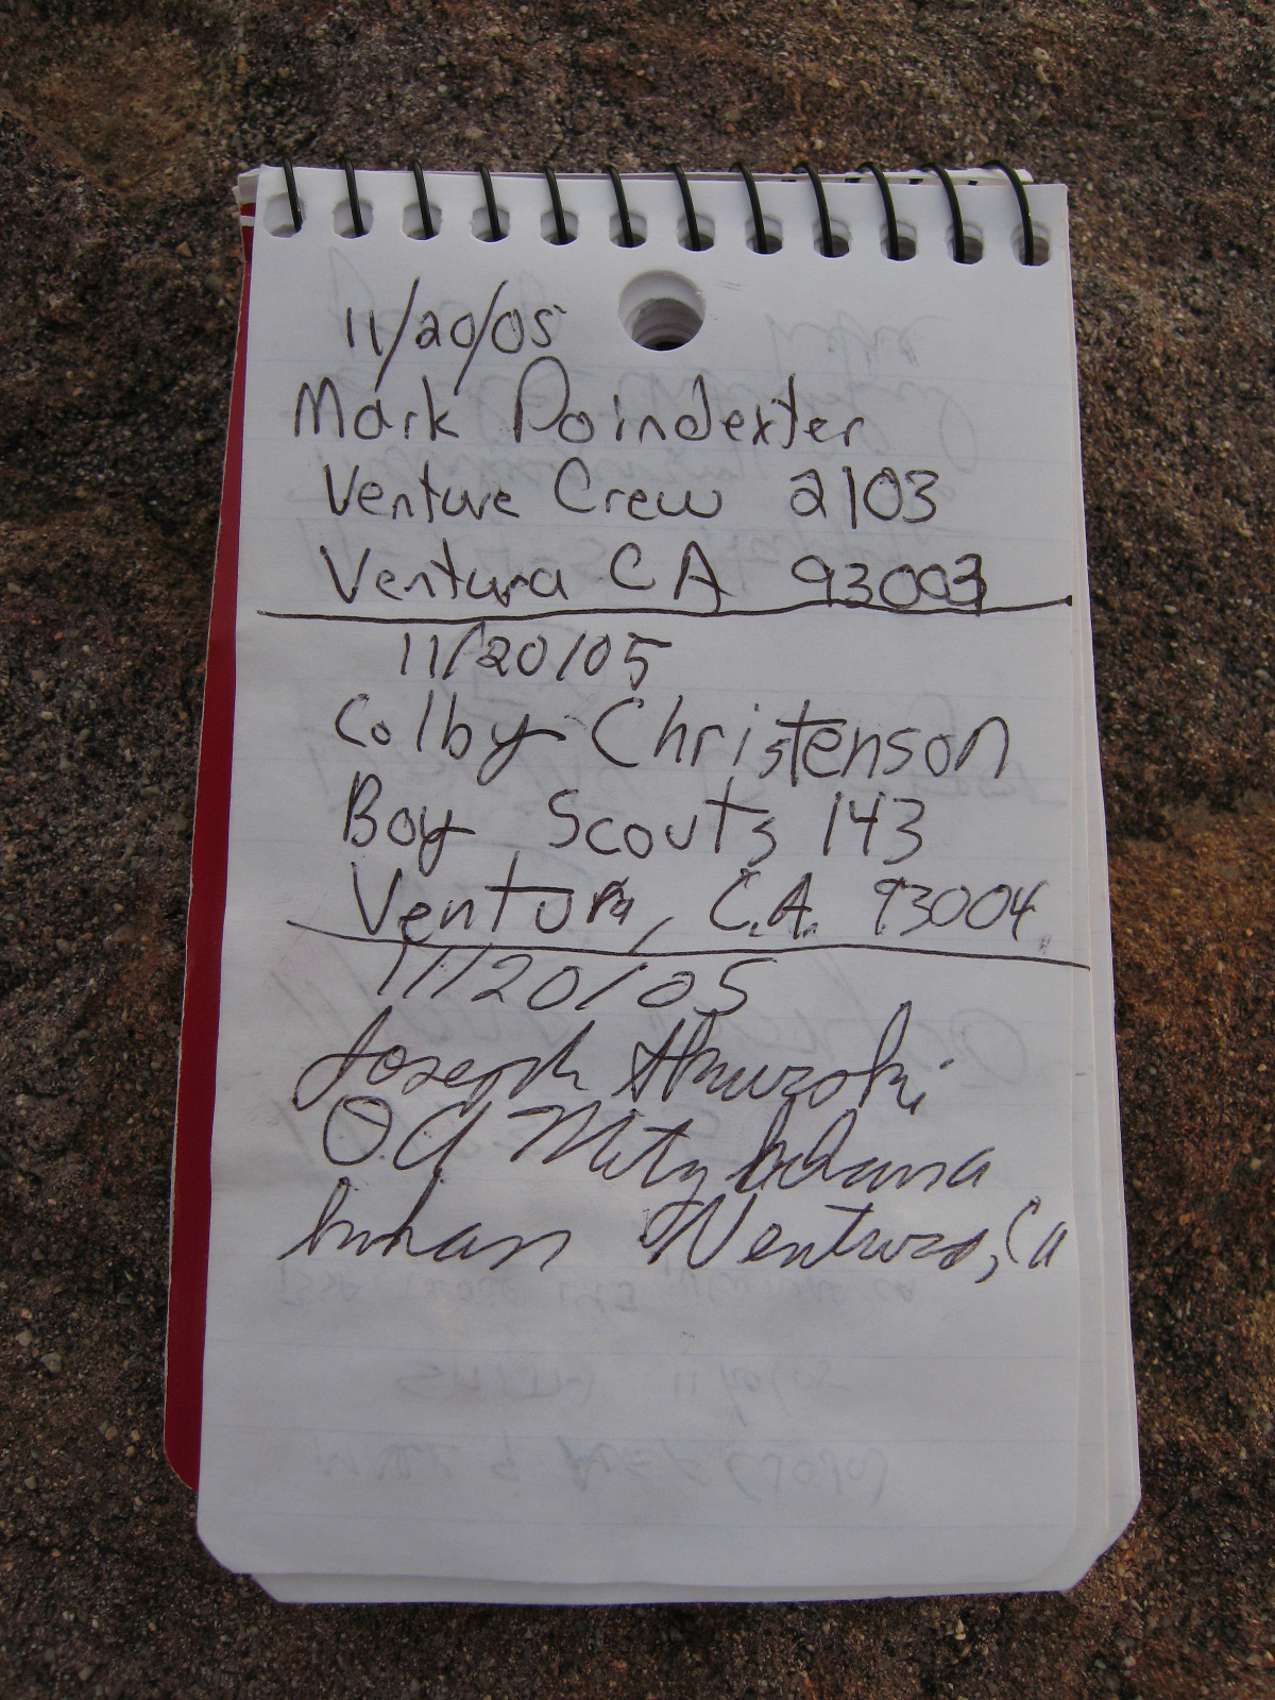 11/20/05
Mark Poindexter
Venture Crew 2103
Ventura CA 93003
11/20/05
Colby Christenson
Boy Scouts 143
Ventura, C.A. 93004
11/20/05
Joseph
human Ventura, Ca